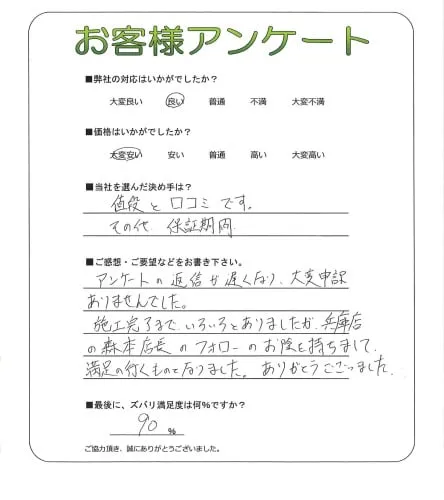 お客様アンケート
■弊社の対応はいかがでしたか？
大変良い 良い 普通 不満 大変不満
■価格はいかがでしたか？
大変安い 安い 普通 高い 大変高い
■当社を選んだ決め手は？
値段と口コミです。
その他 保証期間
■ご感想・ご要望などをお書き下さい。
アンケートの返信が遅くなり、大変申訳
ありませんでした。
施工完了まで、いろいろとありましたが、兵庫店
の森本店長のフォローのお陰を持ちまして、
満足の行くものとなりました。ありがとうございました。
■最後に、ズバリ満足度は何%ですか？
90 %
ご協力頂き、誠にありがとうございました。